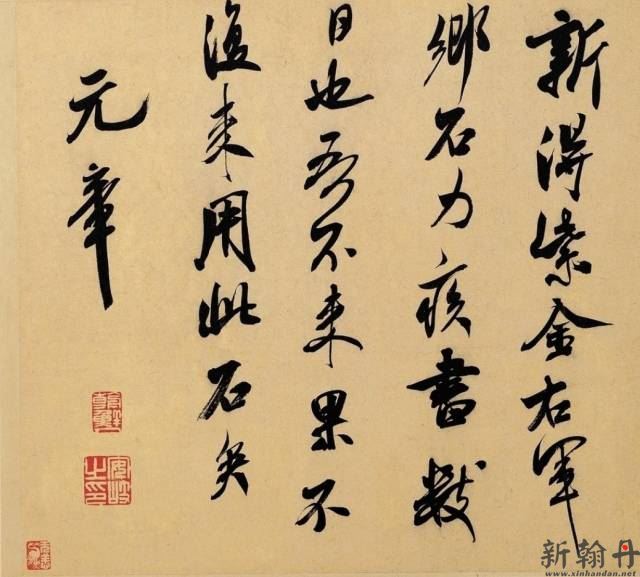 新得紫金右軍
鄉石力疾書數
日也吾不來果不
復來用此石矣
元章
安岐之印
新翰丹
www.xinhandan.net